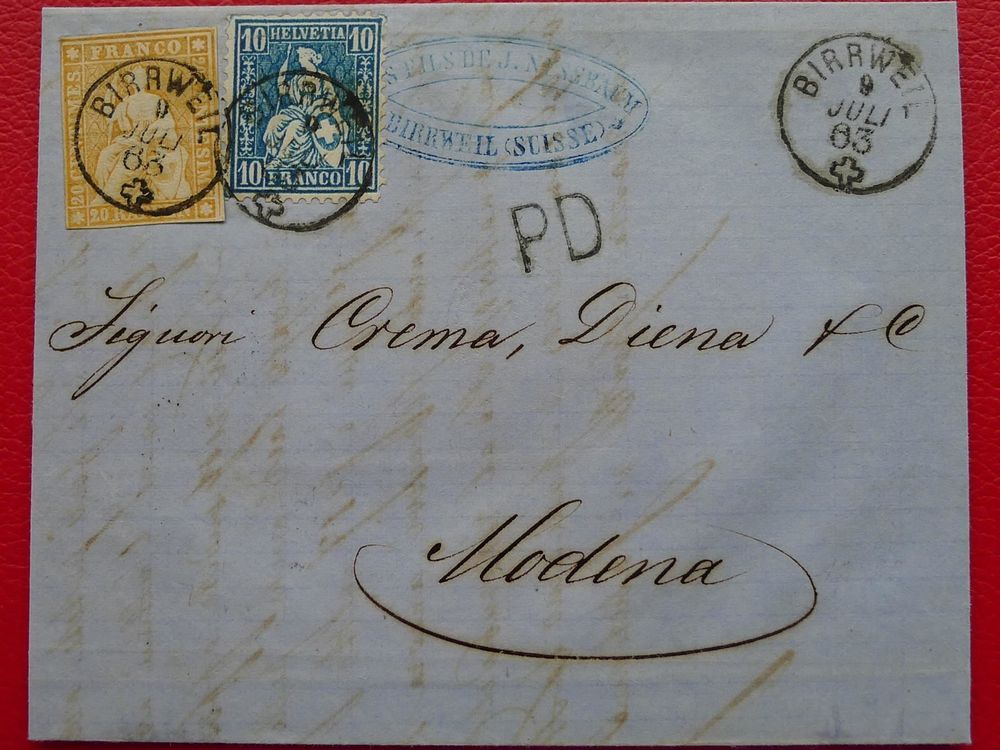 FRANCO
20 CENTIMES.
20 RAPPEN
BIRRWEIL
9
JULI
63
10 HELVETIA 10
10 FRANCO 10
FILS DE J.
BIRRWEIL (SUISSE)
BIRRWEIL
9
JULI
63
PD
Signori Crema, Diena & Co
Modena